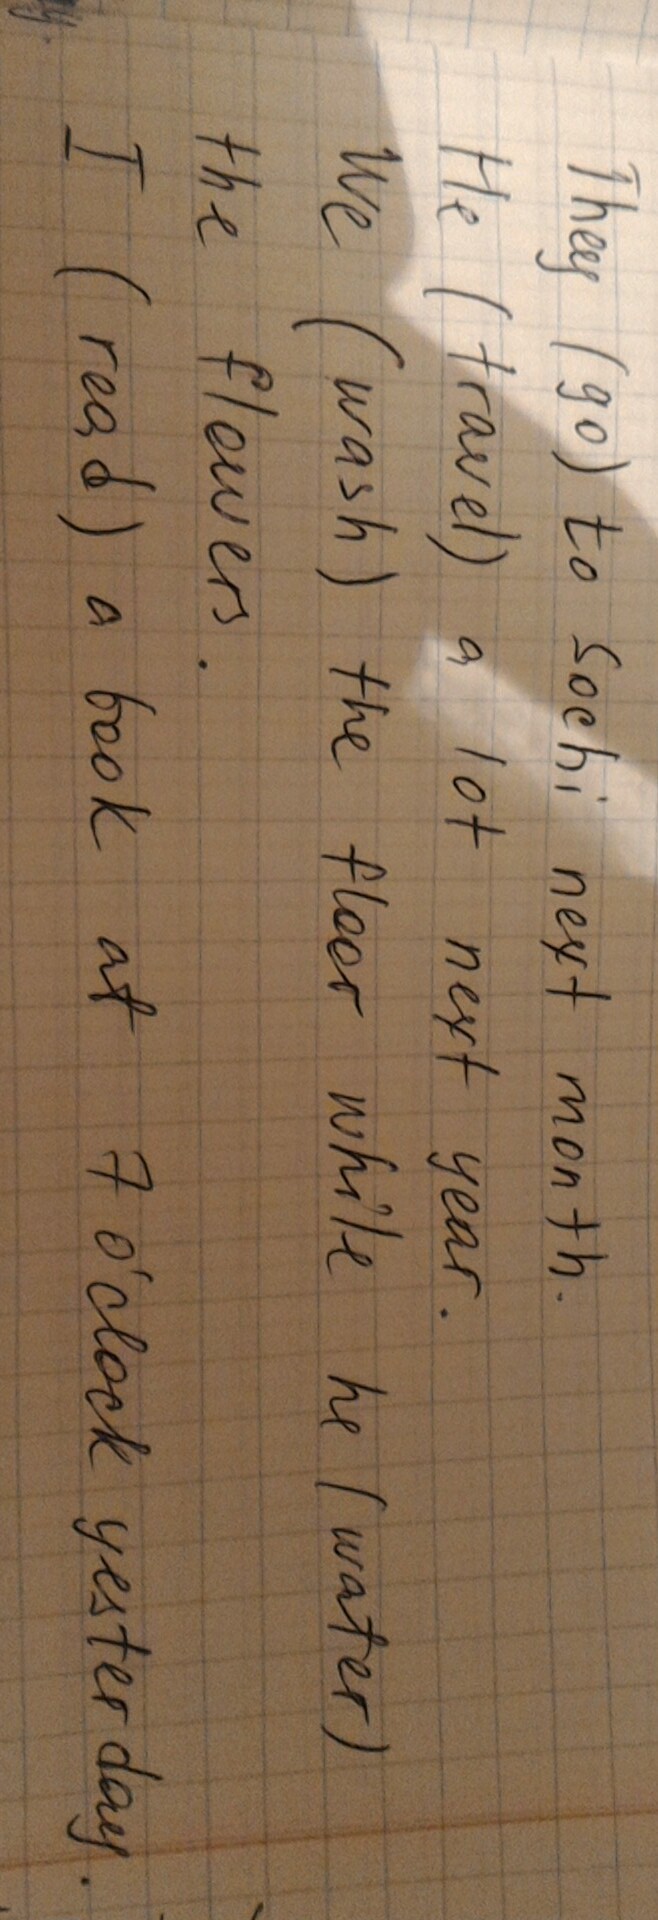 They (go) to Sochi next month.
He (travel) a lot next year.
We (wash) the floor while he (water)
the flowers.
I (read) a book at 7 o'clock yesterday.